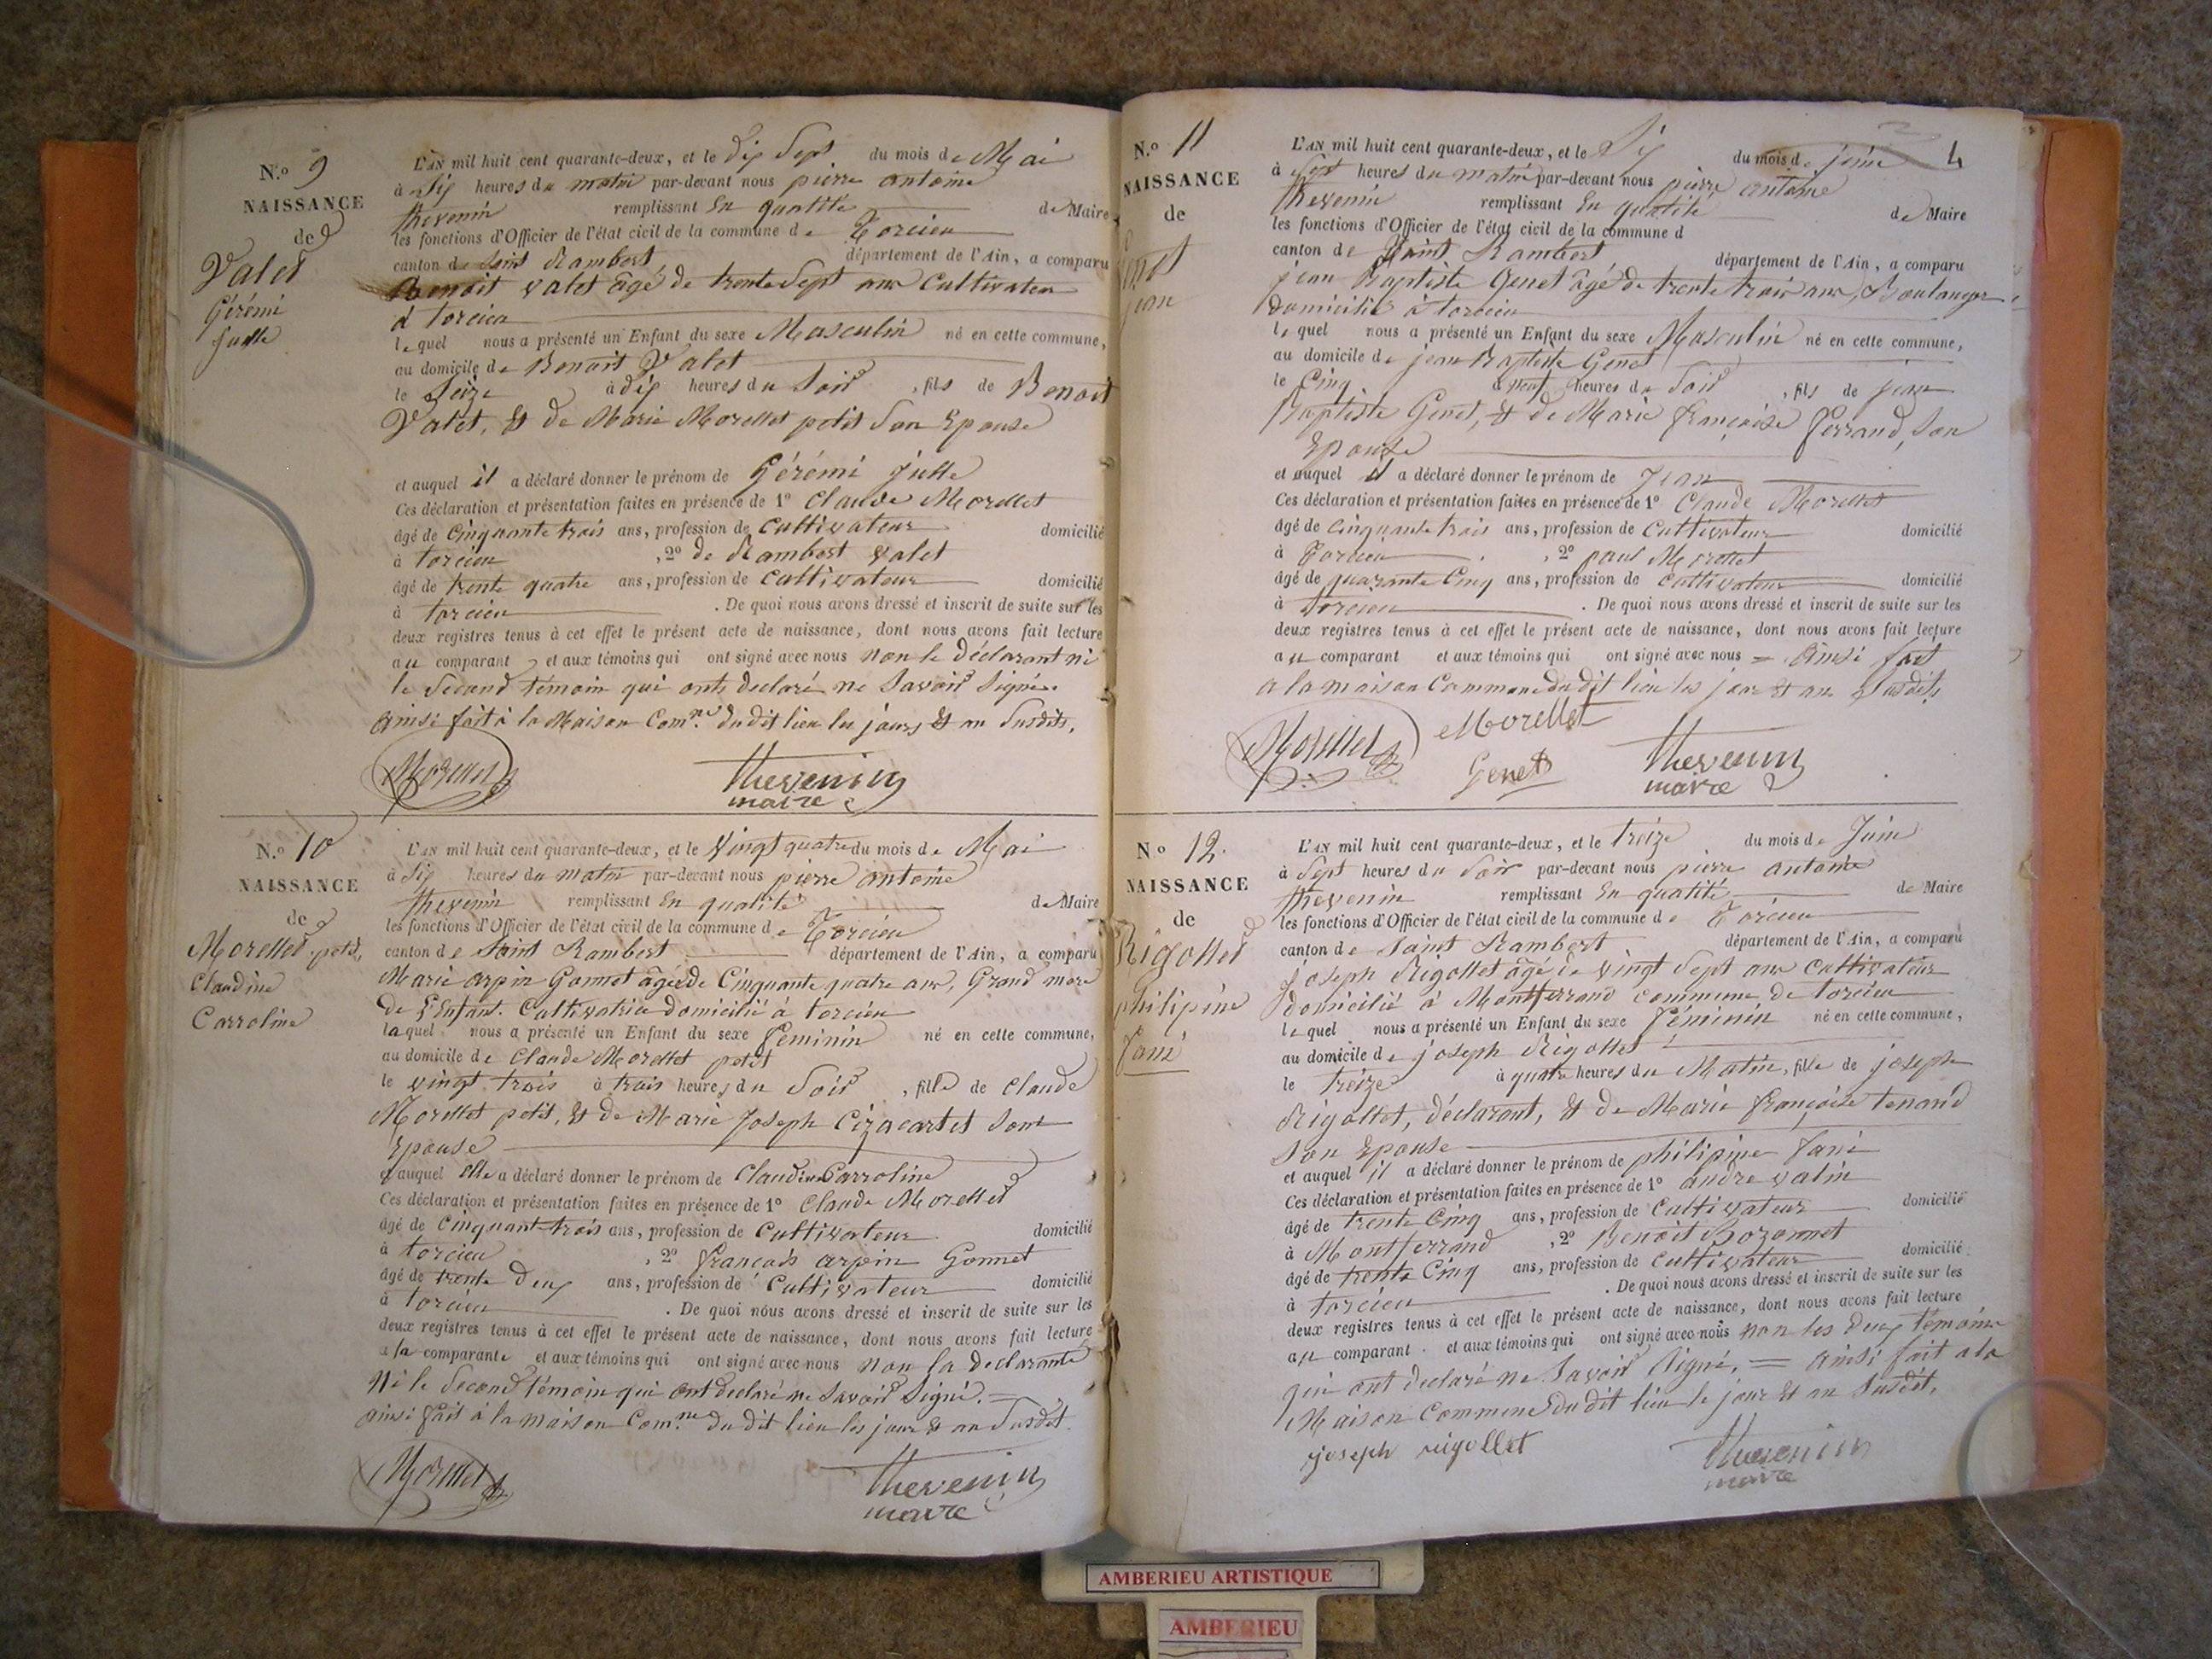 N.o 9
NAISSANCE
de
Valet
Gérémi
Julle
L'AN mil huit cent quarante-deux, et le dix Sept du mois de Mai
à Six heures du matin par-devant nous pierre antoine
thevenin remplissant En qualité de Maire
les fonctions d'Officier de l'état civil de la commune de Torcieu
canton de Saint Rambert département de l'Ain, a comparu
Benoit valet âgé de trente Sept ans Cultivateur
à torcieu
lequel nous a présenté un Enfant du sexe Masculin né en cette commune,
au domicile de Benoit Valet
le Seize à dix heures du Soir, fils de Benoit
Valet, & de Marie Morellet petit Son Epouse
et auquel il a déclaré donner le prénom de Gérémi Julle
Ces déclaration et présentation faites en présence de 1o Claude Morellet
âgé de Cinquante trois ans, profession de Cultivateur domicilié
à torcieu, 2o de Rambert valet
âgé de trente quatre ans, profession de Cultivateur domicilié
à torcieu. De quoi nous avons dressé et inscrit de suite sur les
deux registres tenus à cet effet le présent acte de naissance, dont nous avons fait lecture
au comparant et aux témoins qui ont signé avec nous non le Déclarant ni
le Second témoin qui onts declaré ne Savoir Signé.
ainsi fait à la Maison Com.ne du dit lieu les jours & an Susdits.
Morellet
thevenin
maire
N.o 10
NAISSANCE
de
Morellet petit,
Claudine
Carroline
L'AN mil huit cent quarante-deux, et le Vingt quatre du mois de Mai
à Six heures du matin par-devant nous pierre antoine
thevenin remplissant En qualité de Maire
les fonctions d'Officier de l'état civil de la commune de Torcieu
canton de Saint Rambert département de l'Ain, a comparu
Marie arpin Gonnet âgée de Cinquante quatre ans, Grand mere
de l'Enfant. Cultivatrice domicilié à torcieu
laquel nous a présenté un Enfant du sexe Féminin né en cette commune,
au domicile de Claude Morellet petit
le vingt trois à trois heures du Soir, fille de Claude
Morellet petit, & de Marie Joseph Cizacartet Sont
Epouse
et auquel elle a déclaré donner le prénom de Claudine Carroline
Ces déclaration et présentation faites en présence de 1o Claude Morellet
âgé de Cinquant-trois ans, profession de Cultivateur domicilié
à torcieu, 2o françois arpin Gonnet
âgé de trente Deux ans, profession de Cultivateur domicilié
à torcieu. De quoi nous avons dressé et inscrit de suite sur les
deux registres tenus à cet effet le présent acte de naissance, dont nous avons fait lecture
a la comparante et aux témoins qui ont signé avec nous non la Déclarante
ni le Second témoin qui ont declaré ne Savoir Signé. =
ainsi fait à la maison Com.ne du dit lieu les jour & an Susdit.
Morellet
thevenin
maire
4
N.o 11
NAISSANCE
de
Genet
jean
L'AN mil huit cent quarante-deux, et le Six du mois de juin
à Sept heures du matin par-devant nous pierre antoine
thevenin remplissant En qualité de Maire
les fonctions d'Officier de l'état civil de la commune d
canton de Saint Rambert département de l'Ain, a comparu
jean Baptiste Genet âgé de trente trois ans, Boulanger
domicilié à torcieu
lequel nous a présenté un Enfant du sexe Masculin né en cette commune,
au domicile de jean Baptiste Genet
le Cinq à neuf heures du Soir, fils de jean
Baptiste Genet, & de Marie françoise Ferrand, Son
Epouse
et auquel il a déclaré donner le prénom de Jean
Ces déclaration et présentation faites en présence de 1o Claude Morellet
âgé de Cinquante trois ans, profession de Cultivateur domicilié
à Torcieu, 2o paul Morellet
âgé de quarante Cinq ans, profession de Cultivateur domicilié
à torcieu. De quoi nous avons dressé et inscrit de suite sur les
deux registres tenus à cet effet le présent acte de naissance, dont nous avons fait lecture
au comparant et aux témoins qui ont signé avec nous = ainsi fait
a la maison Commune du dit lieu les jour & an Susdits,
Morellet
Morellet
Genet
thevenin
maire
N.o 12.
NAISSANCE
de
Rigollet
philipine
fani
L'AN mil huit cent quarante-deux, et le treize du mois de Juin
à Sept heures du Soir par-devant nous pierre antoine
thevenin remplissant En qualité de Maire
les fonctions d'Officier de l'état civil de la commune de Torcieu
canton de Saint Rambert département de l'Ain, a comparu
joseph Rigollet âgé de vingt Sept ans Cultivateur
domicilié à Montferrand Commune de torcieu
lequel nous a présenté un Enfant du sexe Féminin né en cette commune,
au domicile de joseph Rigollet
le treize à quatre heures du Matin, fille de joseph
Rigollet, déclarant, & de Marie françoise tenand
Son Epouse
et auquel il a déclaré donner le prénom de philipine fani
Ces déclaration et présentation faites en présence de 1o andre valin
âgé de trente Cinq ans, profession de Cultivateur domicilié
à Montferrand, 2o Benoit Bozonnet
âgé de trente Cinq ans, profession de Cultivateur domicilié
à torcieu. De quoi nous avons dressé et inscrit de suite sur les
deux registres tenus à cet effet le présent acte de naissance, dont nous avons fait lecture
au comparant et aux témoins qui ont signé avec nous non les deux témoins
qui ont declaré ne Savoir Signé, = ainsi fait a la
Maison Commune du dit lieu le jour & an Susdit.
joseph rigollet
thevenin
maire
AMBERIEU ARTISTIQUE
AMBERIEU